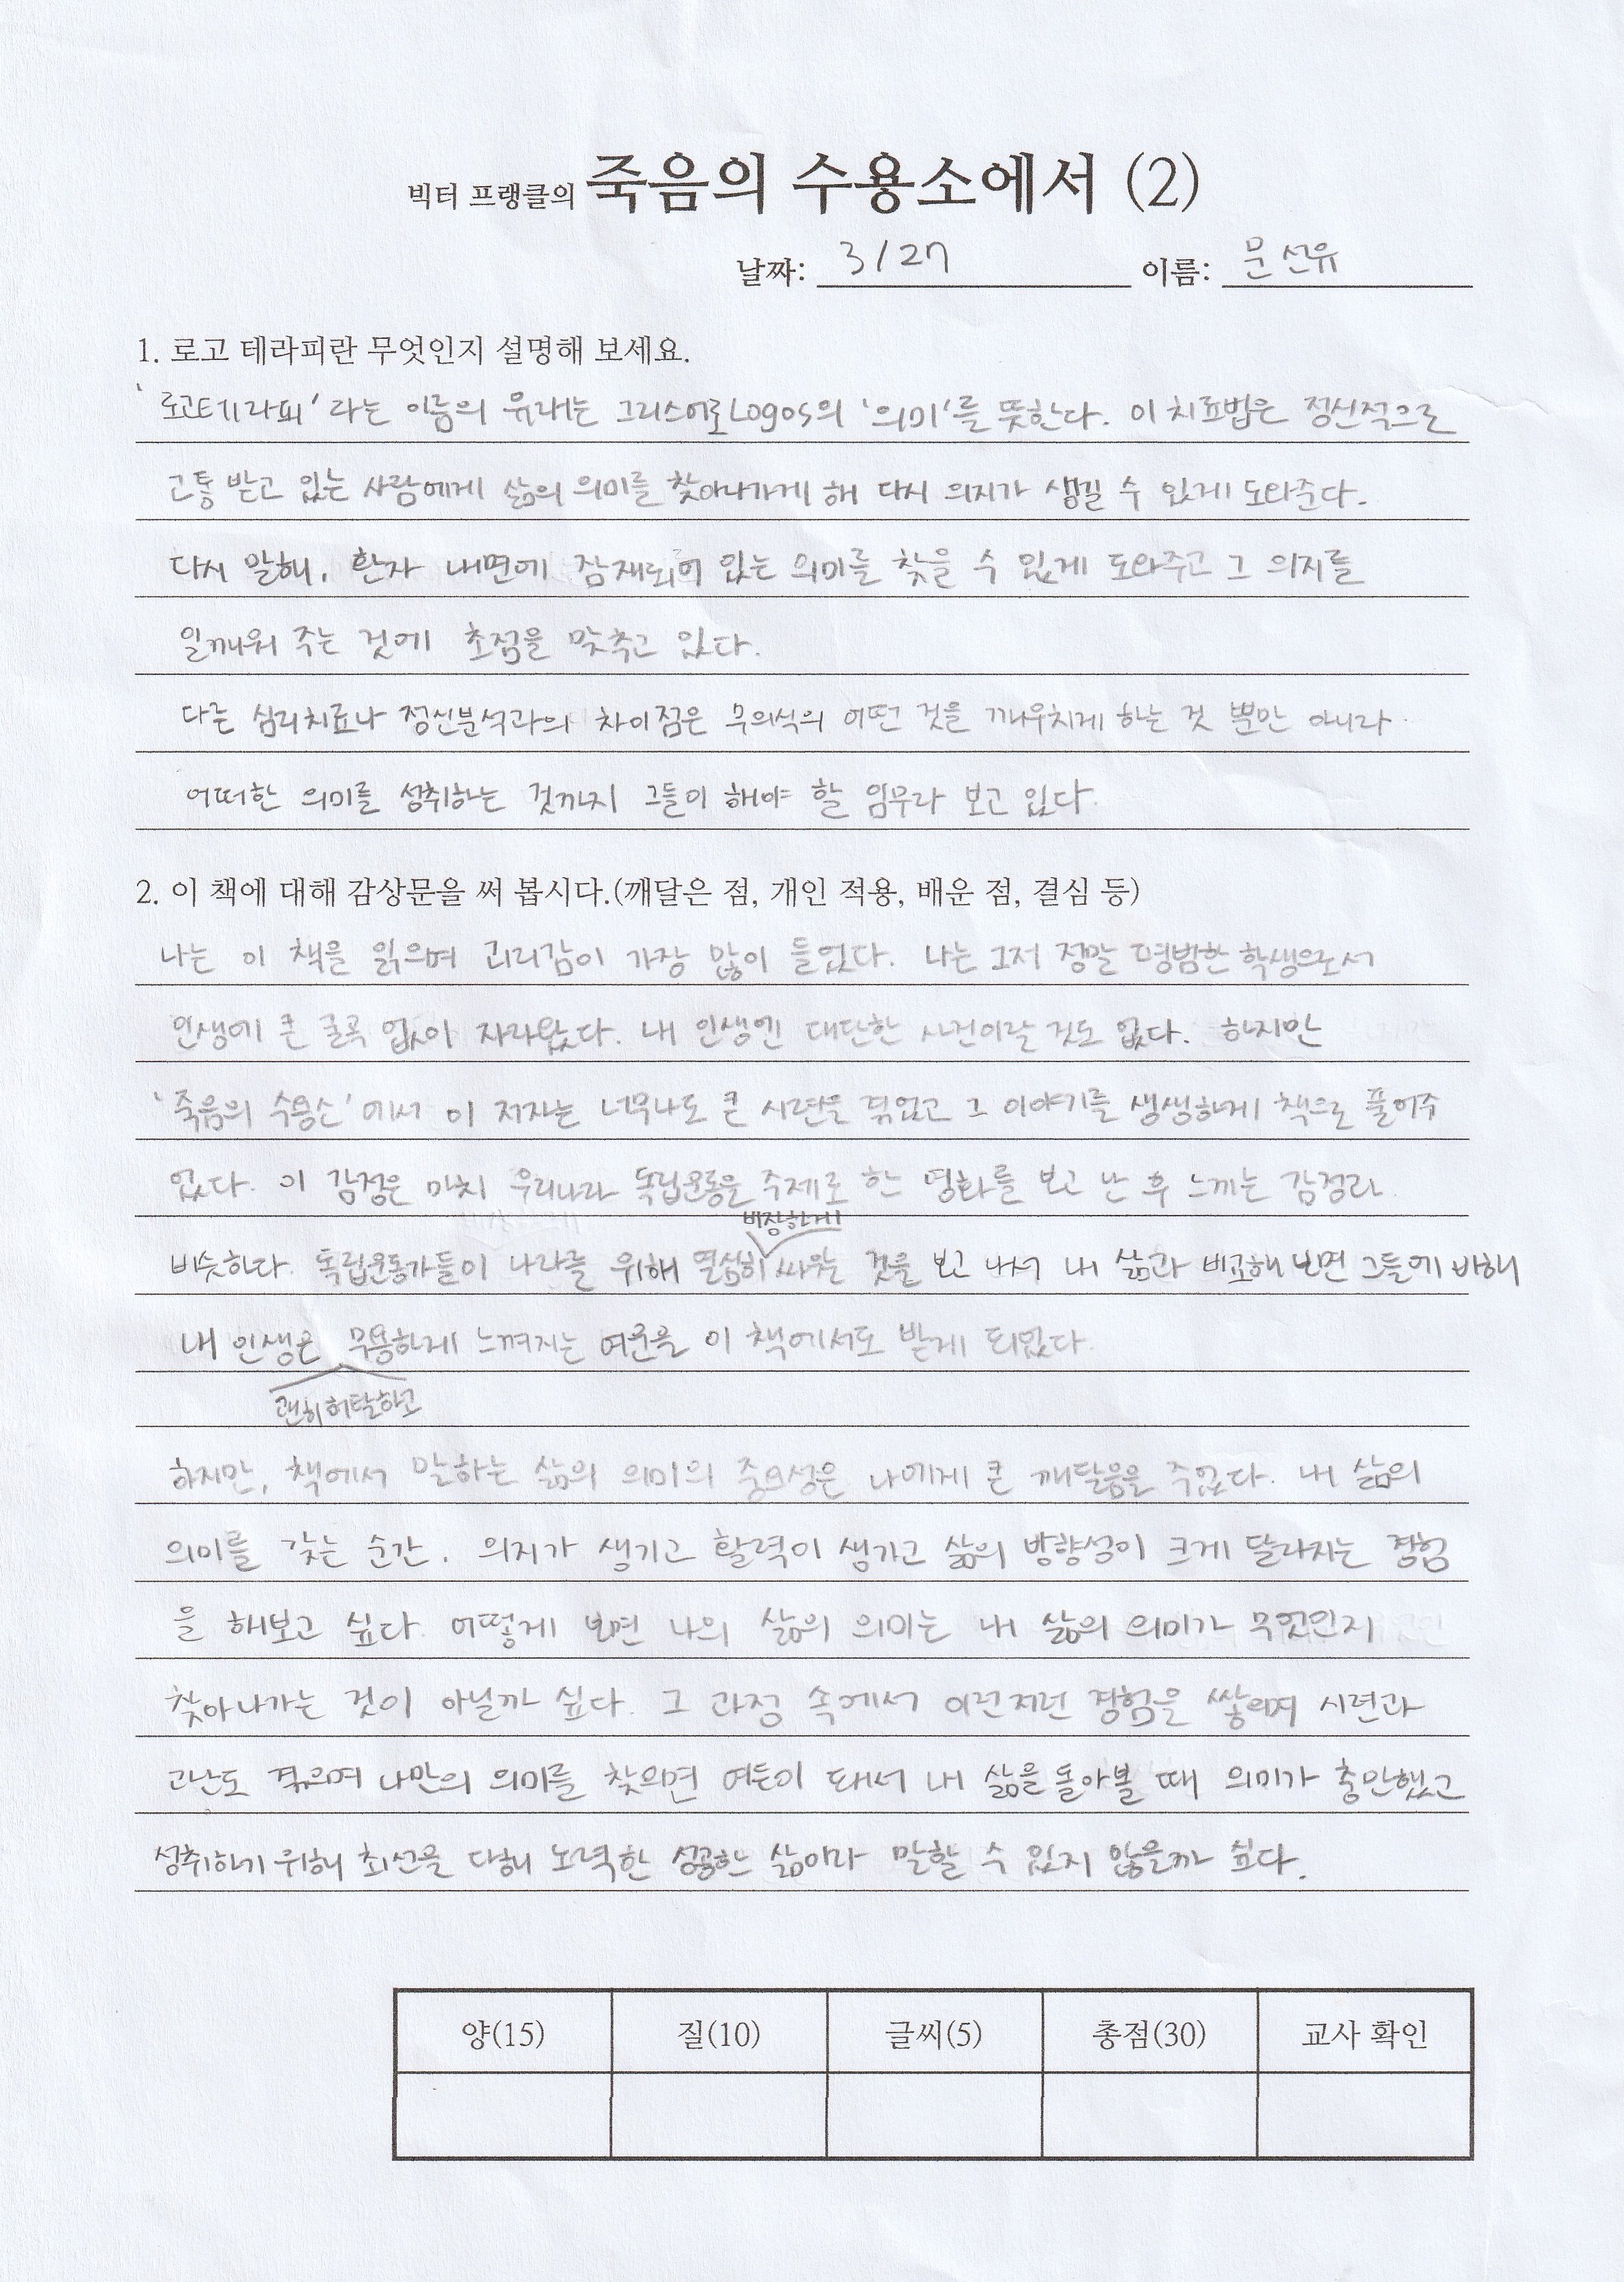 빅터 프랭클의 죽음의 수용소에서 (2)
날짜: 3/27 이름: 문선유
1. 로고 테라피란 무엇인지 설명해 보세요.
'로고테라피'라는 이름의 유래는 그리스어로 Logos의 '의미'를 뜻한다. 이 치료법은 정신적으로
고통 받고 있는 사람에게 삶의 의미를 찾아나가게 해 다시 의지가 생길 수 있게 도와준다.
다시 말해, 환자 내면에 잠재되어 있는 의미를 찾을 수 있게 도와주고 그 의지를
일깨워 주는 것에 초점을 맞추고 있다.
다른 심리치료나 정신분석과의 차이점은 무의식의 어떤 것을 깨우치게 하는 것 뿐만 아니라
어떠한 의미를 성취하는 것까지 그들이 해야 할 임무라 보고 있다.
2. 이 책에 대해 감상문을 써 봅시다.(깨달은 점, 개인 적용, 배운 점, 결심 등)
나는 이 책을 읽으며 괴리감이 가장 많이 들었다. 나는 그저 정말 평범한 학생으로서
인생에 큰 굴곡 없이 자라왔다. 내 인생엔 대단한 사건이랄 것도 없다. 하지만
'죽음의 수용소'에서 이 저자는 너무나도 큰 시련을 겪었고 그 이야기를 생생하게 책으로 풀어주
었다. 이 감정은 마치 우리나라 독립운동을 주제로 한 영화를 보고 난 후 느끼는 감정과
비장하게
비슷하다. 독립운동가들이 나라를 위해 열심히 싸우는 것을 보고 나서 내 삶과 비교해 보면 그들에 비해
내 인생은 무용하게 느껴지는 여운을 이 책에서도 받게 되었다.
괜히 허탈하고
하지만, 책에서 말하는 삶의 의미의 중요성은 나에게 큰 깨달음을 주었다. 내 삶의
의미를 갖는 순간, 의지가 생기고 활력이 생기고 삶의 방향성이 크게 달라지는 경험
을 해보고 싶다. 어떻게 보면 나의 삶의 의미는 내 삶의 의미가 무엇인지
찾아나가는 것이 아닐까 싶다. 그 과정 속에서 이런저런 경험을 쌓으며 시련과
고난도 겪으며 나만의 의미를 찾으면 여든이 돼서 내 삶을 돌아볼 때 의미가 충만했고
성취하기 위해 최선을 다해 노력한 성공한 삶이라 말할 수 있지 않을까 싶다.
양(15) 질(10) 글씨(5) 총점(30) 교사 확인